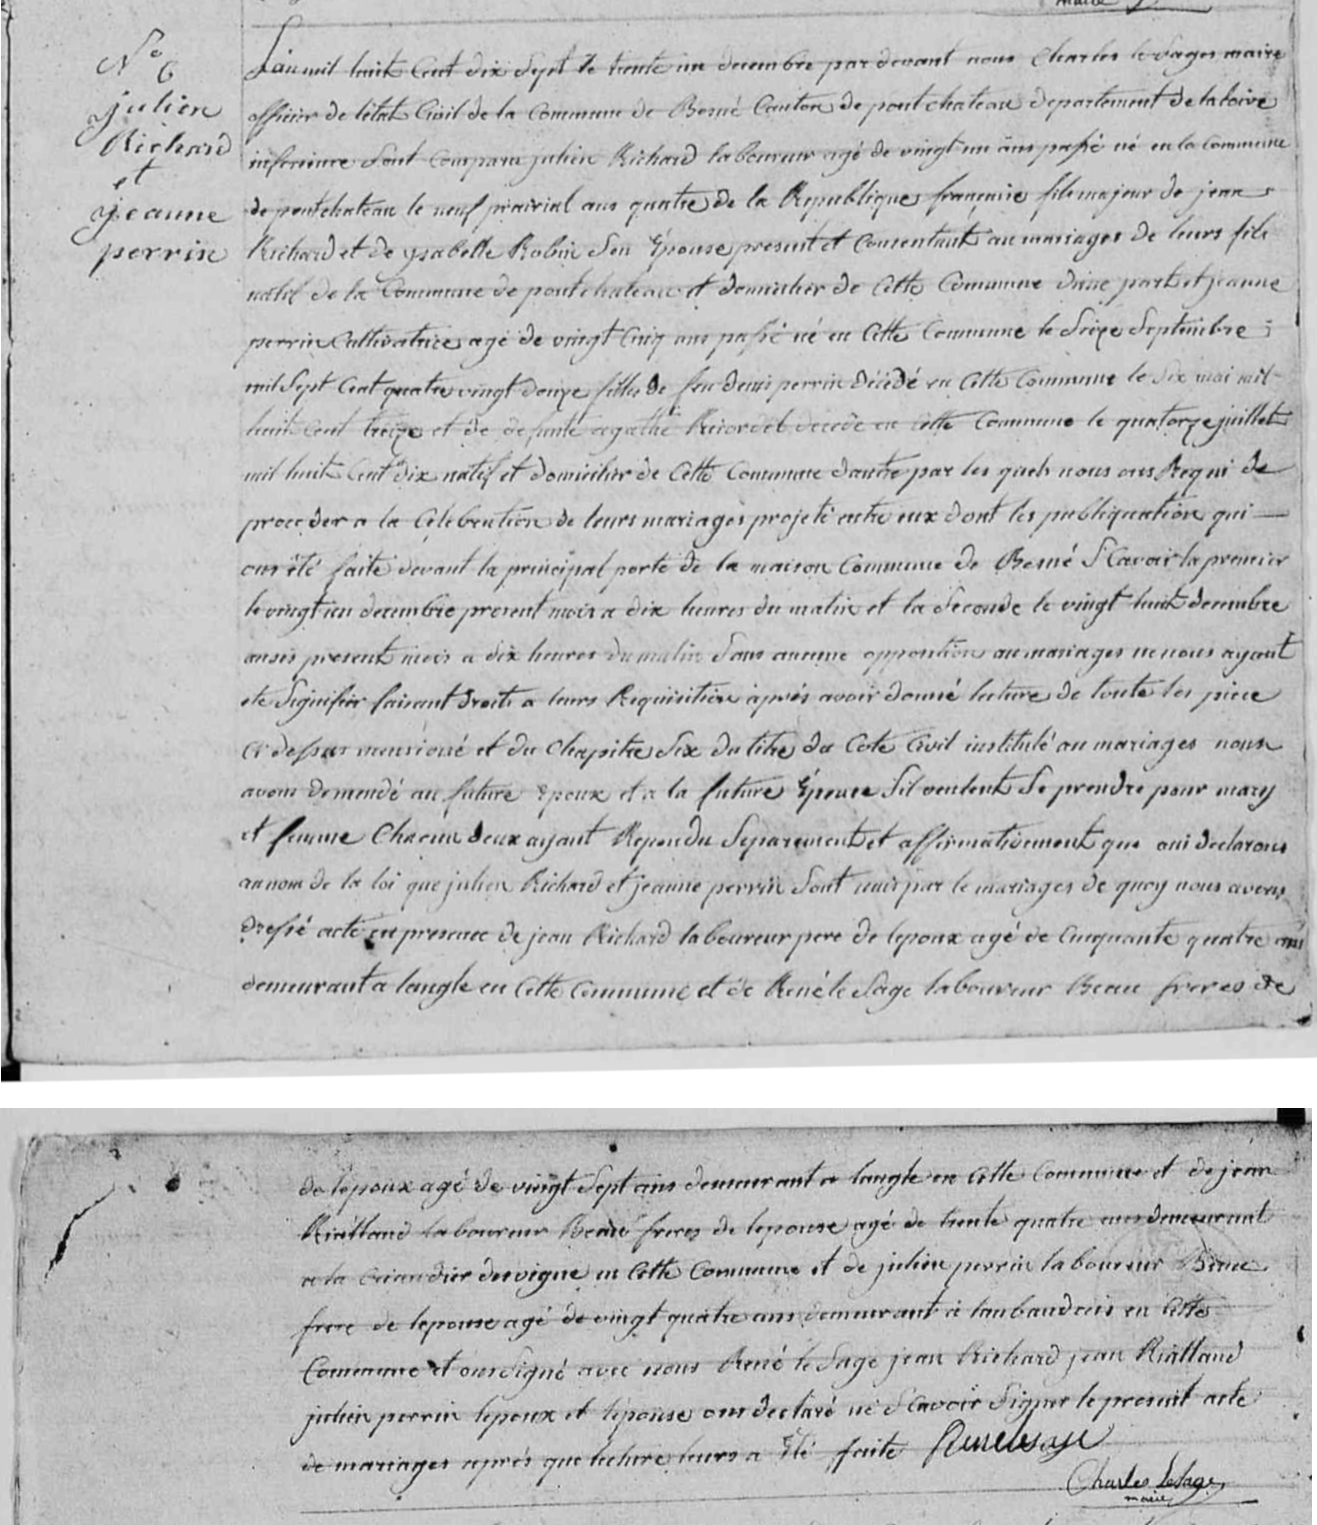 maire
N° 6
julien
Richard
et
jeanne
perrin
Lan mil huit Cent dix Sept le trente un decembre par devant nous Charles le Sages maire
officier de létat Civil de la Commune de Besné Canton de pontchateau departement de la loire
inferieure Sont Comparu julien Richard laboureur agé de vingt un ans passé né en la Commune
de pontchateau le neuf prairial ans quatre de la Republique française fils majeur de jean
Richard et de ysabelle Robin Son Epouse present et Consentant au mariages de leurs fils
natif de la Commune de pontchateau et domicilier de Cette Commune dune part et jeanne
perrin Cultivatrice agé de vingt Cinq ans passé né en Cette Commune le Seize Septembre
mil Sept Cent quatre vingt douze fille de feu denis perrin décédé en Cette Commune le Six mai mil
huit Cent treize et de defunte agathe décédé en Cette Commune le quatorze juillet
mil huit Cent dix natif et domicilier de Cette Commune dautre par les quels nous ons Requi de
proceder a la Célébration de leurs mariages projeté entre eux dont les publiquation qui
ons été faite devant la principal porte de la maison Commune de Besné Scavoir la premier
le vingt un decembre present mois a dix heures du matin et la Seconde le vingt huit decembre
ausis present mois a dix heures du matin Sans aucune opposition au mariages ne nous ayant
ete Signifier faisant droits a leurs Requisition après avoir donné lecture de toute les piece
Ci dessus mensioné et du Chapitre Six du titre du Cote Civil institulé au mariages nous
avons demendé au future Epoux et a la future Epouse Sil veulent Se prendre pour mary
et femme Chacun deux ayant Repondu Separement et affirmativement que oui declarons
au nom de la loi que julien Richard et jeanne perrin Sont unis par le mariages de quoy nous avons
dressé acte en presence de jean Richard laboureur pere de lepoux agé de Cinquante quatre ans
demeurant a langle en Cette Commune et de René le Sage laboureur Beau freres de
de lepoux agé de vingt Sept ans demeurant a langle en Cette Commune et de jean
Rialland laboureur Beau freres de lepouse agé de trente quatre ans demeurant
a la en Cette Commune et de julien perrin laboureur
frere de lepouse agé de vingt quatre ans demeurant à en Cette
Commune et ons Signé avec nous René le Sage jean Richard jean Rialland
julien perrin lepoux et lépouse ons declaré ne Scavoir Signer le present acte
de mariages après que lecture leurs a Été faite Renelesage
Charles LeSage
maire